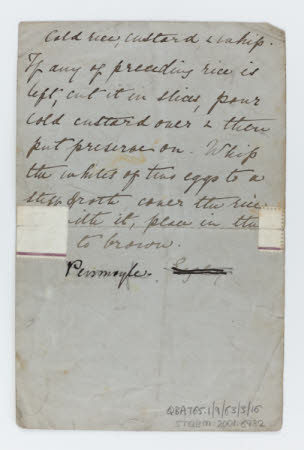 Cold rice, custard & whip.
If any of preceding rice is
left, cut it in slices, pour
cold custard over & then
put preserve on. Whip
the whites of two eggs to a
stiff froth cover the rice
with it, place in the
to brown.
Penmoyle.
QBATES:1/9/63/5/16
STQUM:2001-6982